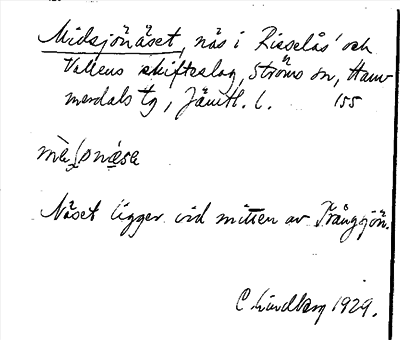 Midsjönäset, näs i Risselås' och
Vallens skifteslag, Ströms sn, Ham-
merdals tg, Jämtl. l. 155
Näset ligger vid mitten av Trångsjön.
C Lindberg 1929.